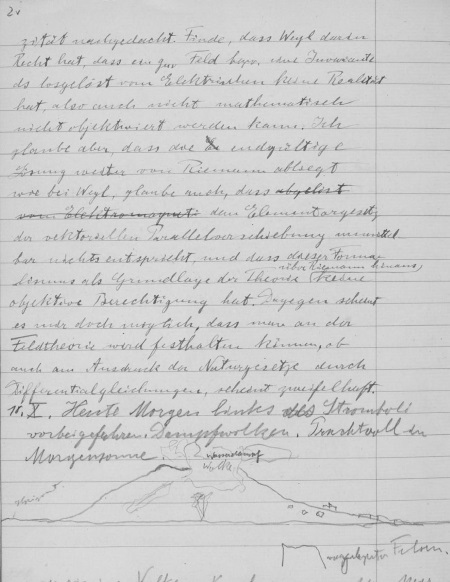 2.
zität nachgedacht. Finde, dass Weyl darin
Recht hat, dass ein gμν Feld bezw. eine Invariante
ds losgelöst vom Elektrischen keine Realität
hat, also auch nicht mathematisch
nicht objektiviert werden kann. Ich
glaube aber, dass die endgültige
Lösung weiter von Riemann abliegt
wie bei Weyl, glaube auch, dass abgelöst
vom Elektromagneti dem Elementargesetz
der vektoriellen Parallelverschiebung unmittel
bar nichts entspricht, und dass dieser Formalismus
über Riemann hinaus,
als Grundlage der Theorie keine
objektive Berechtigung hat. Dagegen scheint
es mir doch möglich, dass man an der
Feldtheorie wird festhalten können, ob
auch am Ausdruck der Naturgesetze durch
Differentialgleichungen, scheint zweifelhaft.
10. X. Heute Morgen links Stromboli
vorbeigefahren. Dampfwolken. Prachtvoll in
Morgensonne.
Wasserdampf
Wolke
Horizont